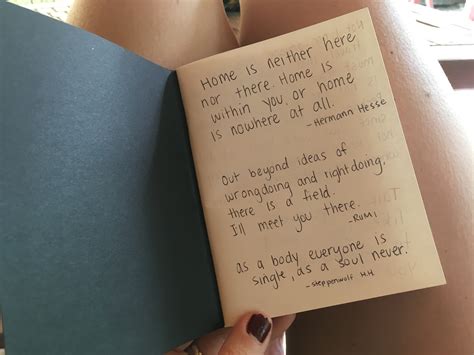 Home is neither here
nor there. Home is
within you, or home
is nowhere at all.
- Hermann Hesse
Out beyond ideas of
wrongdoing and rightdoing,
there is a field.
I'll meet you there.
- RUMI
as a body everyone is
single, as a soul never.
- steppenwolf H.H.